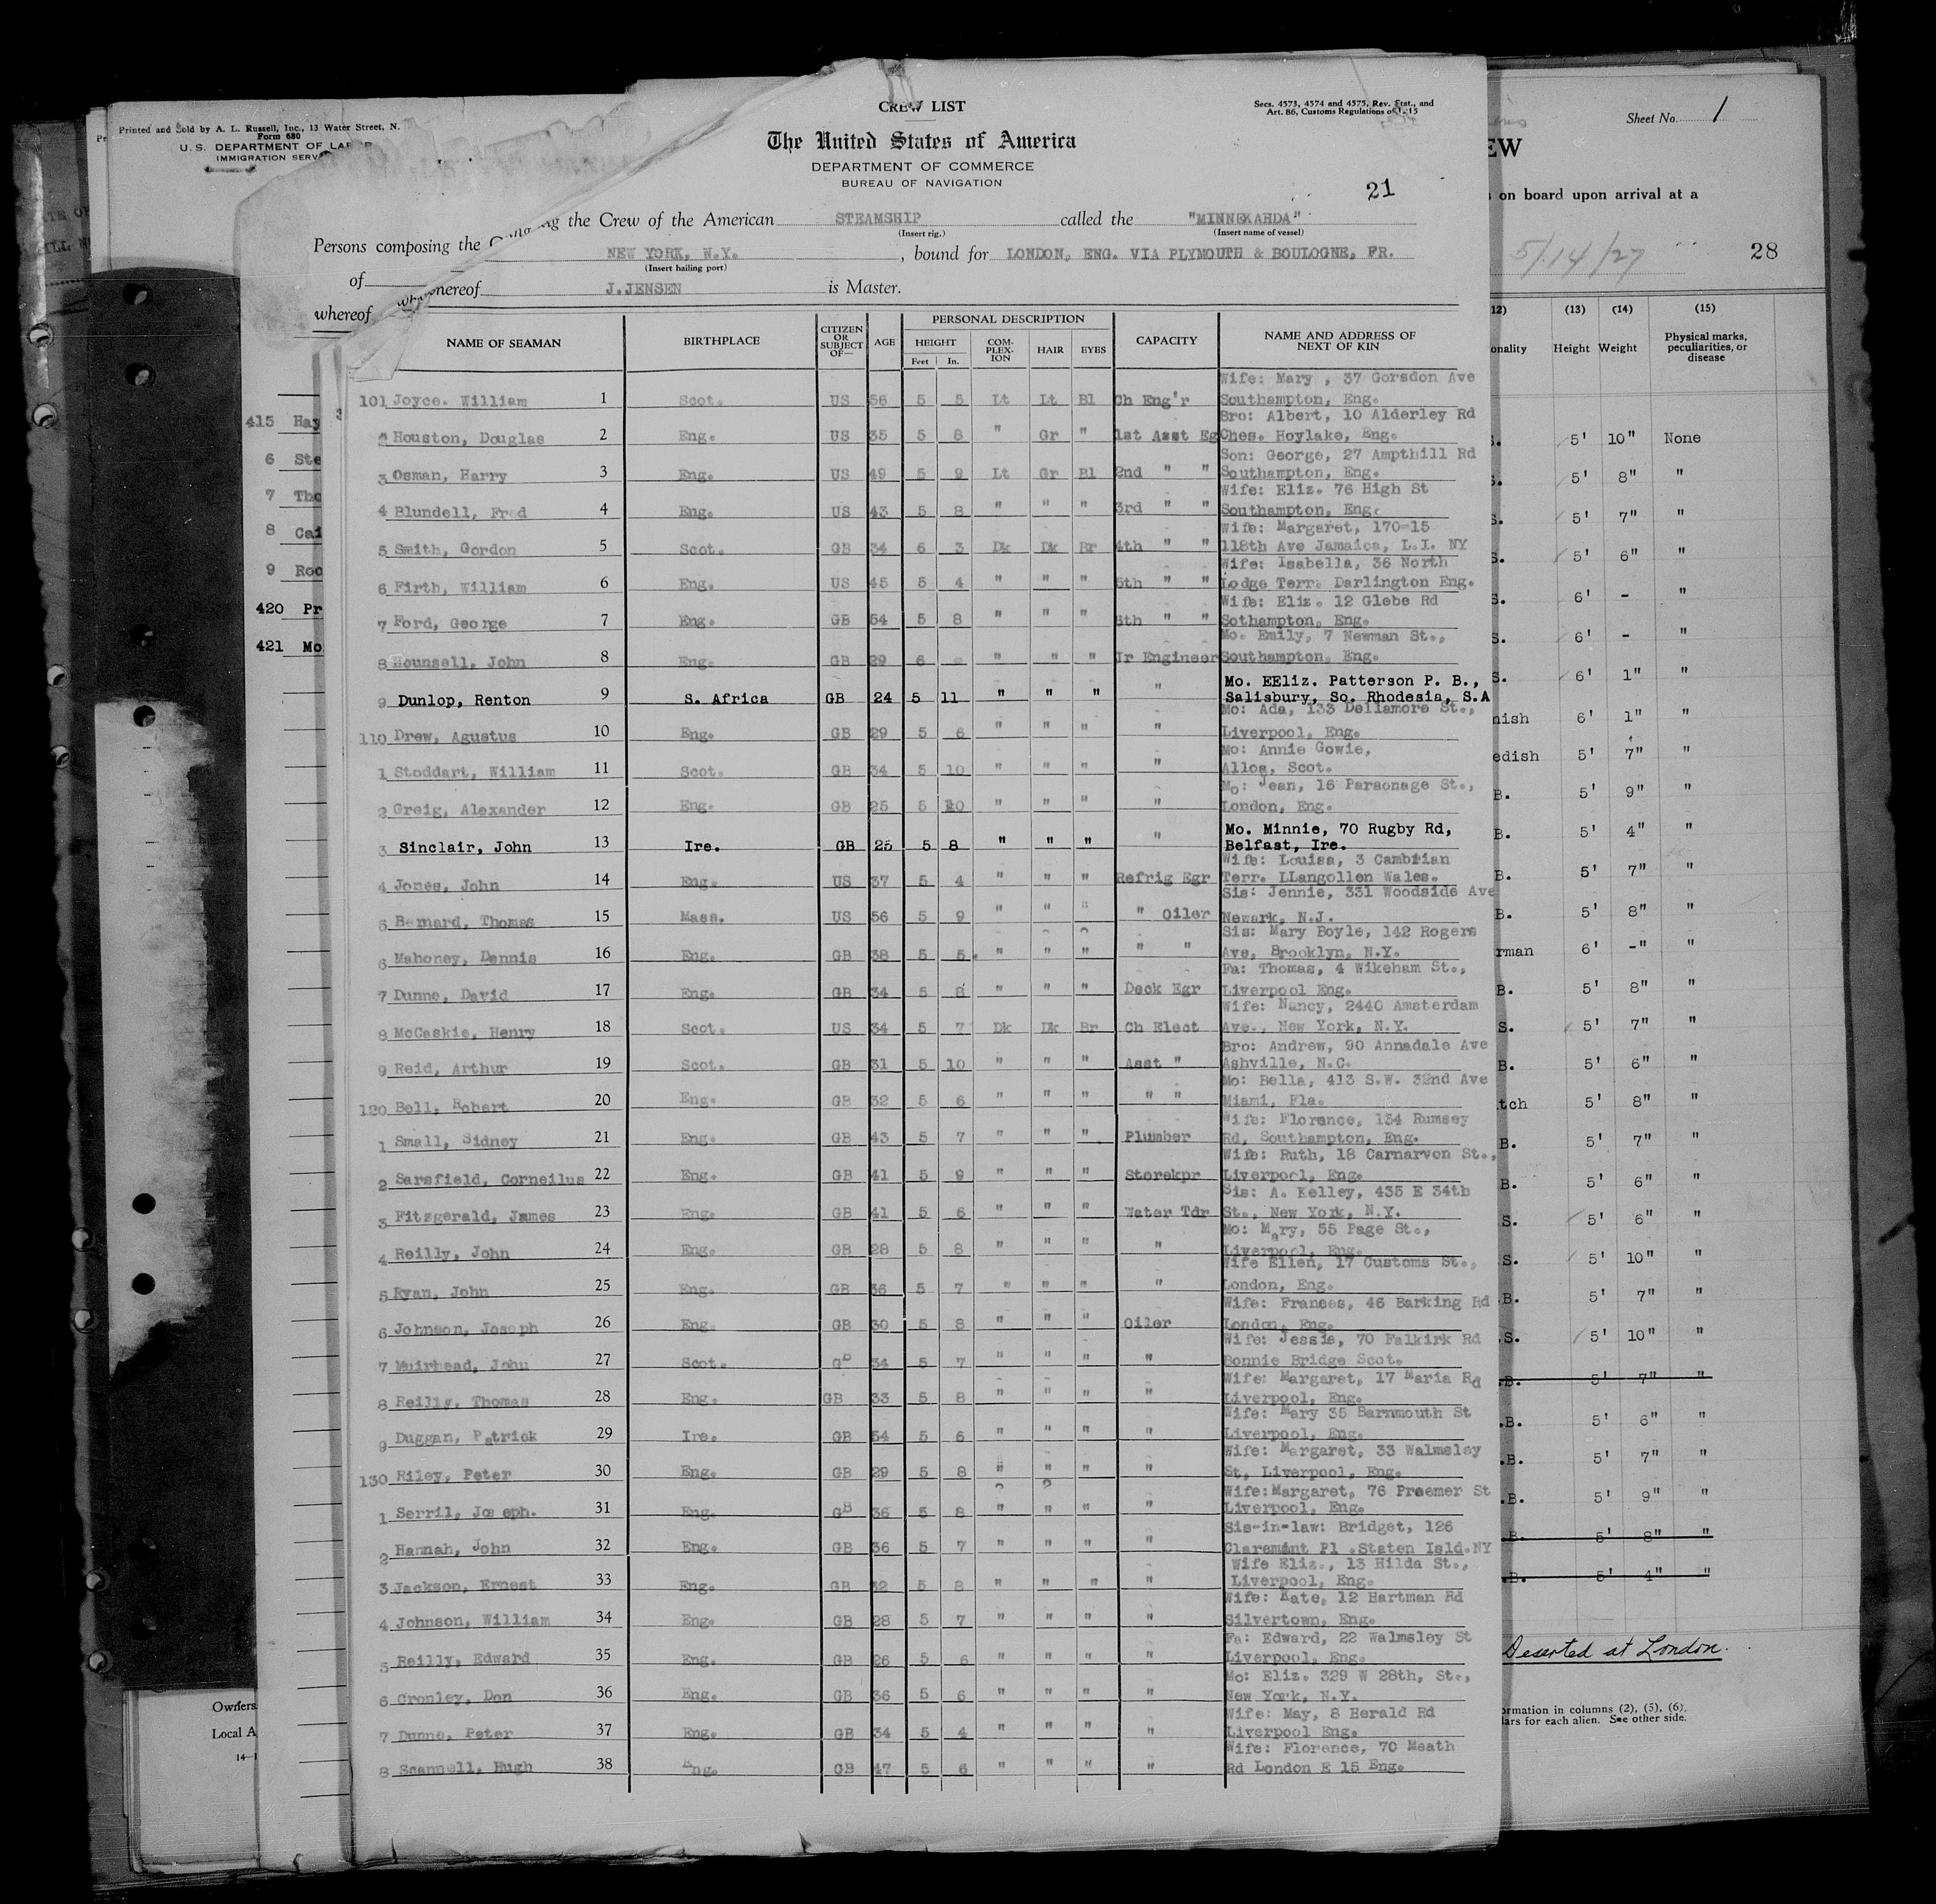 Printed and Sold by A. L. Russell, Inc., 13 Water Street, N.
Form 680
U.S. DEPARTMENT OF LABOR
IMMIGRATION SERV
CREW LIST
Secs. 4573, 4574 and 4575, Rev. Stat., and
Art. 86, Customs Regulations of 1915
The United States of America
DEPARTMENT OF COMMERCE
BUREAU OF NAVIGATION
21
ng the Crew of the American STEAMSHIP called the "MINNEKAHDA"
(Insert rig.) (Insert name of vessel)
Persons composing the
NEW YORK, N.Y. , bound for LONDON, ENG. VIA PLYMOUTH & BOULOGNE, FR.
(Insert hailing port)
of whereof J.JENSEN is Master.
whereof
NAME OF SEAMAN BIRTHPLACE CITIZEN OR SUBJECT OF— AGE PERSONAL DESCRIPTION CAPACITY NAME AND ADDRESS OF NEXT OF KIN
HEIGHT COM-PLEX-ION HAIR EYES
Feet In.
Wife: Mary , 37 Gorsdon Ave
101 Joyce. William 1 Scot. US 56 5 5 Lt Lt Bl Ch Eng'r Southampton, Eng.
Bro: Albert, 10 Alderley Rd
Houston, Douglas 2 Eng. US 35 5 8 " Gr " 1st Asst Eg Ches. Hoylake, Eng.
Son: George, 27 Ampthill Rd
3 Osman, Harry 3 Eng. US 49 5 9 Lt Gr Bl 2nd " " Southampton, Eng.
Wife: Eliz. 76 High St
4 Blundell, Fred 4 Eng. US 43 5 8 " " " 3rd " " Southampton, Eng.
Wife: Margaret, 170-15
5 Smith, Gordon 5 Scot. GB 34 6 3 Dk Dk Br 4th " " 118th Ave Jamaica, L.I. NY
Wife: Isabella, 36 North
6 Firth, William 6 Eng. US 45 5 4 " " " 5th " " Lodge Terr. Darlington Eng.
Wife: Eliz. 12 Glebe Rd
7 Ford, George 7 Eng. GB 54 5 8 " " " 6th " " Sothampton, Eng.
Mo. Emily, 7 Newman St.,
8 Hounsell, John 8 Eng. GB 29 6 - " " " Jr Engineer Southampton, Eng.
Mo. EEliz. Patterson P. B.,
9 Dunlop, Renton 9 S. Africa GB 24 5 11 " " " " Salisbury, So. Rhodesia, S.A
Mo: Ada, 133 Dellamore St.,
110 Drew, Agustus 10 Eng. GB 29 5 6 " " " " Liverpool, Eng.
Mo: Annie Gowie,
1 Stoddart, William 11 Scot. GB 34 5 10 " " " " Alloa, Scot.
Mo: Jean, 16 Parsonage St.,
2 Greig, Alexander 12 Eng. GB 25 5 10 " " " " London, Eng.
Mo. Minnie, 70 Rugby Rd,
3 Sinclair, John 13 Ire. GB 25 5 8 " " " " Belfast, Ire.
Wife: Louisa, 3 Cambrian
4 Jones, John 14 Eng. US 37 5 4 " " " Refrig Egr Terr. LLangollen Wales.
Sis: Jennie, 331 Woodside Ave
5 Barnard, Thomas 15 Mass. US 56 5 9 " " " " Oiler Newark, N.J.
Sis: Mary Boyle, 142 Rogers
6 Mahoney, Dennis 16 Eng. GB 38 5 5. " " " " " Ave, Brooklyn, N.Y.
Fa: Thomas, 4 Wikeham St.,
7 Dunne, David 17 Eng. GB 34 5 8 " " " Deck Egr Liverpool Eng.
Wife: Nancy, 2440 Amsterdam
8 McCaskie, Henry 18 Scot. US 34 5 7 Dk Dk Br Ch Elect Ave., New York, N.Y.
Bro: Andrew, 90 Annadale Ave
9 Reid, Arthur 19 Scot. GB 31 5 10 " " " Asst " Ashville, N.C.
Mo: Bella, 413 S.W. 32nd Ave
120 Bell, Robert 20 Eng. GB 32 5 6 " " " " " Miami, Fla.
Wife: Florence, 134 Rumsey
1 Small, Sidney 21 Eng. GB 43 5 7 " " " Plumber Rd, Southampton, Eng.
Wife: Ruth, 18 Carnarvon St.,
2 Sarsfield, Corneilus 22 Eng. GB 41 5 9 " " " Storekpr Liverpool, Eng.
Sis: A. Kelley, 435 E 34th
3 Fitzgerald, James 23 Eng. GB 41 5 6 " " " Water Tdr St., New York, N.Y.
Mo: Mary, 55 Page St.,
4 Reilly, John 24 Eng. GB 28 5 8 " " " " Liverpool, Eng.
Wife Ellen, 17 Customs St.,
5 Ryan, John 25 Eng. GB 36 5 7 " " " " London, Eng.
Wife: Frances, 46 Barking Rd
6 Johnson, Joseph 26 Eng. GB 30 5 8 " " " Oiler London, Eng.
Wife: Jessie, 70 Falkirk Rd
7 Muirhead, John 27 Scot. GB 34 5 7 " " " " Bonnie Bridge Scot.
Wife: Margaret, 17 Maria Rd
8 Reilly, Thomas 28 Eng. GB 33 5 8 " " " " Liverpool, Eng.
Wife: Mary 35 Barnmouth St
9 Duggan, Patrick 29 Ire. GB 54 5 6 " " " " Liverpool, Eng.
Wife: Margaret, 33 Walmsley
130 Riley, Peter 30 Eng. GB 29 5 8 " " " " St, Liverpool, Eng.
Wife: Margaret, 76 Praemer St
1 Serril, Joseph. 31 Eng. GB 36 5 8 " " " " Liverpool, Eng.
Sis-in-law: Bridget, 126
2 Hannah, John 32 Eng. GB 36 5 7 " " " " Claremont Pl .Staten Isld.NY
Wife Eliz., 13 Hilda St.,
3 Jackson, Ernest 33 Eng. GB 32 5 8 " " " " Liverpool, Eng.
Wife: Kate, 12 Hartman Rd
4 Johnson, William 34 Eng. GB 28 5 7 " " " " Silvertown, Eng.
Fa: Edward, 22 Walmsley St
5 Reilly, Edward 35 Eng. GB 26 5 6 " " " " Liverpool, Eng.
Mo: Eliz. 329 W 28th, St.,
6 Cronley, Don 36 Eng. GB 36 5 6 " " " " New York, N.Y.
Wife: May, 8 Herald Rd
7 Dunne, Peter 37 Eng. GB 34 5 4 " " " " Liverpool Eng.
Wife: Florence, 70 Meath
8 Scannell, Hugh 38 Eng. GB 47 5 6 " " " " Rd London E 15 Eng.
415 Hay
6 Ste
7 Tho
8 Cai
9 Roo
420 Pr
421 Mo
Owners
Local A
14-1
Sheet No. 1
EW
s on board upon arrival at a
5/14/27
28
12) (13) (14) (15)
onality Height Weight Physical marks, peculiarities, or disease
S. 5' 10" None
S. 5' 8" "
S. 5' 7" "
S. 5' 6" "
S. 6' - "
S. 6' - "
S. 6' 1" "
nish 6' 1" "
edish 5' 7" "
B. 5' 9" "
B. 5' 4" "
B. 5' 7" "
B. 5' 8" "
rman 6' -" "
B. 5' 8" "
S. 5' 7" "
B. 5' 6" "
tch 5' 8" "
B. 5' 7" "
B. 5' 6" "
.S. 5' 6" "
.S. 5' 10" "
.B. 5' 7" "
.S. 5' 10" "
.B. 5' 7" "
.B. 5' 6" "
.B. 5' 7" "
.B. 5' 9" "
.B. 5' 8" "
.B. 5' 4" "
Deserted at London.
ormation in columns (2), (5), (6).
lars for each alien. See other side.